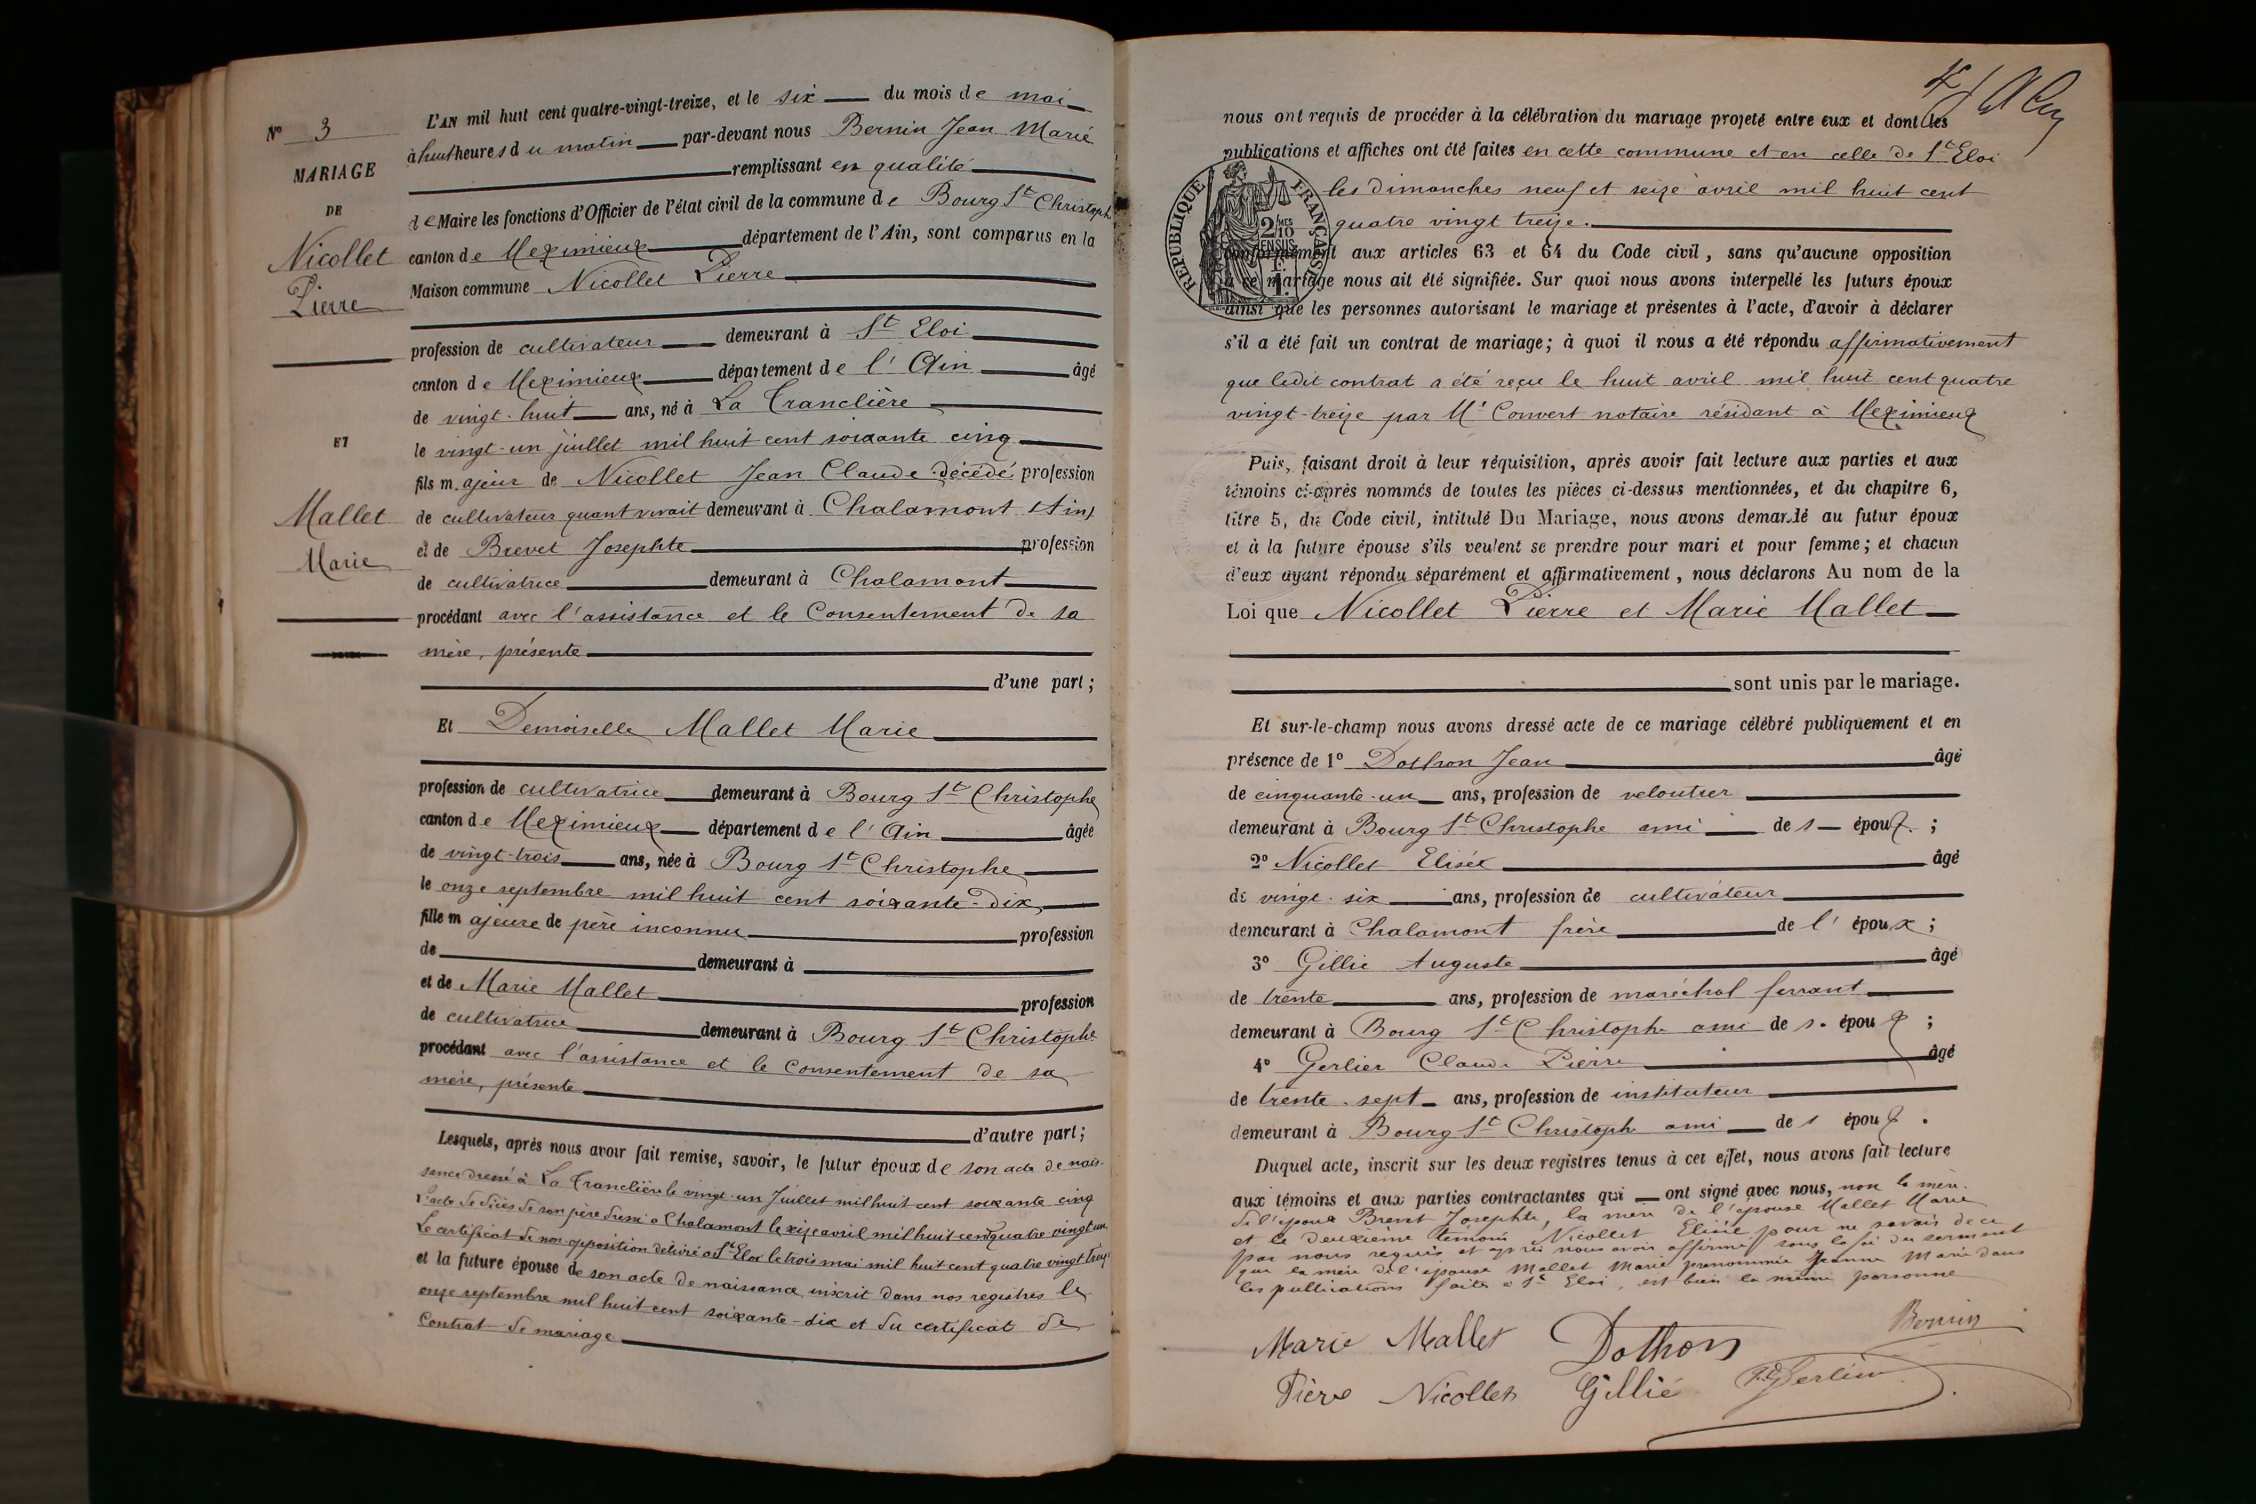 N° 3
MARIAGE
DE
Nicollet
Pierre
ET
Mallet
Marie
L'AN mil huit cent quatre-vingt-treize, et le six du mois de mai
à huit heures du matin par-devant nous Bernin Jean Marie
remplissant en qualité
de Maire les fonctions d'Officier de l'état civil de la commune de Bourg St Christophe
canton de Meximieux département de l'Ain, sont comparus en la
Maison commune Nicollet Pierre
profession de cultivateur demeurant à St Eloi
canton de Meximieux département de l'Ain âgé
de vingt-huit ans, né à La Tranclière
le vingt-un juillet mil huit cent soixante cinq
fils majeur de Nicollet Jean Claude décédé profession
de cultivateur quant vivait demeurant à Chalamont (Ain)
et de Brevet Josephte profession
de cultivatrice demeurant à Chalamont
procédant avec l'assistance et le Consentement de sa
mère, présente
d'une part;
Et Demoiselle Mallet Marie
profession de cultivatrice demeurant à Bourg St Christophe
canton de Meximieux département de l'Ain âgée
de vingt-trois ans, née à Bourg St Christophe
le onze septembre mil huit cent soixante-dix
fille majeure de père inconnu profession
de demeurant à
et de Marie Mallet profession
de cultivatrice demeurant à Bourg St Christophe
procédant avec l'assistance et le Consentement de sa
mère, présente
d'autre part;
Lesquels, après nous avoir fait remise, savoir, le futur époux de son acte de nais-
sance dressé à La Tranclière le vingt-un Juillet mil huit cent soixante cinq
l'acte de décès de son père dressé à Chalamont le seize avril mil huit cent quatre vingt un
Le certificat de non-opposition délivré à St Eloi le trois mai mil huit cent quatre vingt treize
et la future épouse de son acte de naissance inscrit dans nos registres le
onze septembre mil huit cent soixante-dix et du certificat de
Contrat de mariage
nous ont requis de procéder à la célébration du mariage projeté entre eux et dont les
publications et affiches ont été faites en cette commune et en celle de St Eloi
les dimanches neuf et seize avril mil huit cent
quatre vingt treize.
RÉPUBLIQUE FRANÇAISE
2/10 EN SUS
conformément aux articles 63 et 64 du Code civil, sans qu'aucune opposition
à ce mariage nous ait été signifiée. Sur quoi nous avons interpellé les futurs époux
ainsi que les personnes autorisant le mariage et présentes à l'acte, d'avoir à déclarer
s'il a été fait un contrat de mariage; à quoi il nous a été répondu affirmativement
que ledit contrat a été reçu le huit avril mil huit cent quatre
vingt-treize par Me Convert notaire résidant à Meximieux
Puis, faisant droit à leur réquisition, après avoir fait lecture aux parties et aux
témoins ci-après nommés de toutes les pièces ci-dessus mentionnées, et du chapitre 6,
titre 5, du Code civil, intitulé Du Mariage, nous avons demandé au futur époux
et à la future épouse s'ils veulent se prendre pour mari et pour femme; et chacun
d'eux ayant répondu séparément et affirmativement, nous déclarons Au nom de la
Loi que Nicollet Pierre et Marie Mallet
sont unis par le mariage.
Et sur-le-champ nous avons dressé acte de ce mariage célébré publiquement et en
présence de 1° Dothon Jean âgé
de cinquante-un ans, profession de veloutier
demeurant à Bourg St Christophe ami de s époux;
2° Nicollet Elisée âgé
de vingt-six ans, profession de cultivateur
demeurant à Chalamont frère de l'époux;
3° Gillié Auguste âgé
de trente ans, profession de maréchal ferrant
demeurant à Bourg St Christophe ami de s époux;
4° Gerlier Claude Pierre âgé
de trente-sept ans, profession de instituteur
demeurant à Bourg St Christophe ami de s époux.
Duquel acte, inscrit sur les deux registres tenus à cet effet, nous avons fait lecture
aux témoins et aux parties contractantes qui ont signé avec nous, non la mère
de l'époux Brevet Josephte, la mère de l'épouse Mallet Marie
et le deuxième témoin Nicollet Elisée pour ne savoir de ce
par nous requis et après nous avoir affirmé sous la foi du serment
que la mère de l'épouse Mallet Marie prénommée Jeanne Marie dans
les publications faites à St Eloi, est bien la même personne
Marie Mallet Dothon Bernin
Pière Nicollet Gillié Gerlier